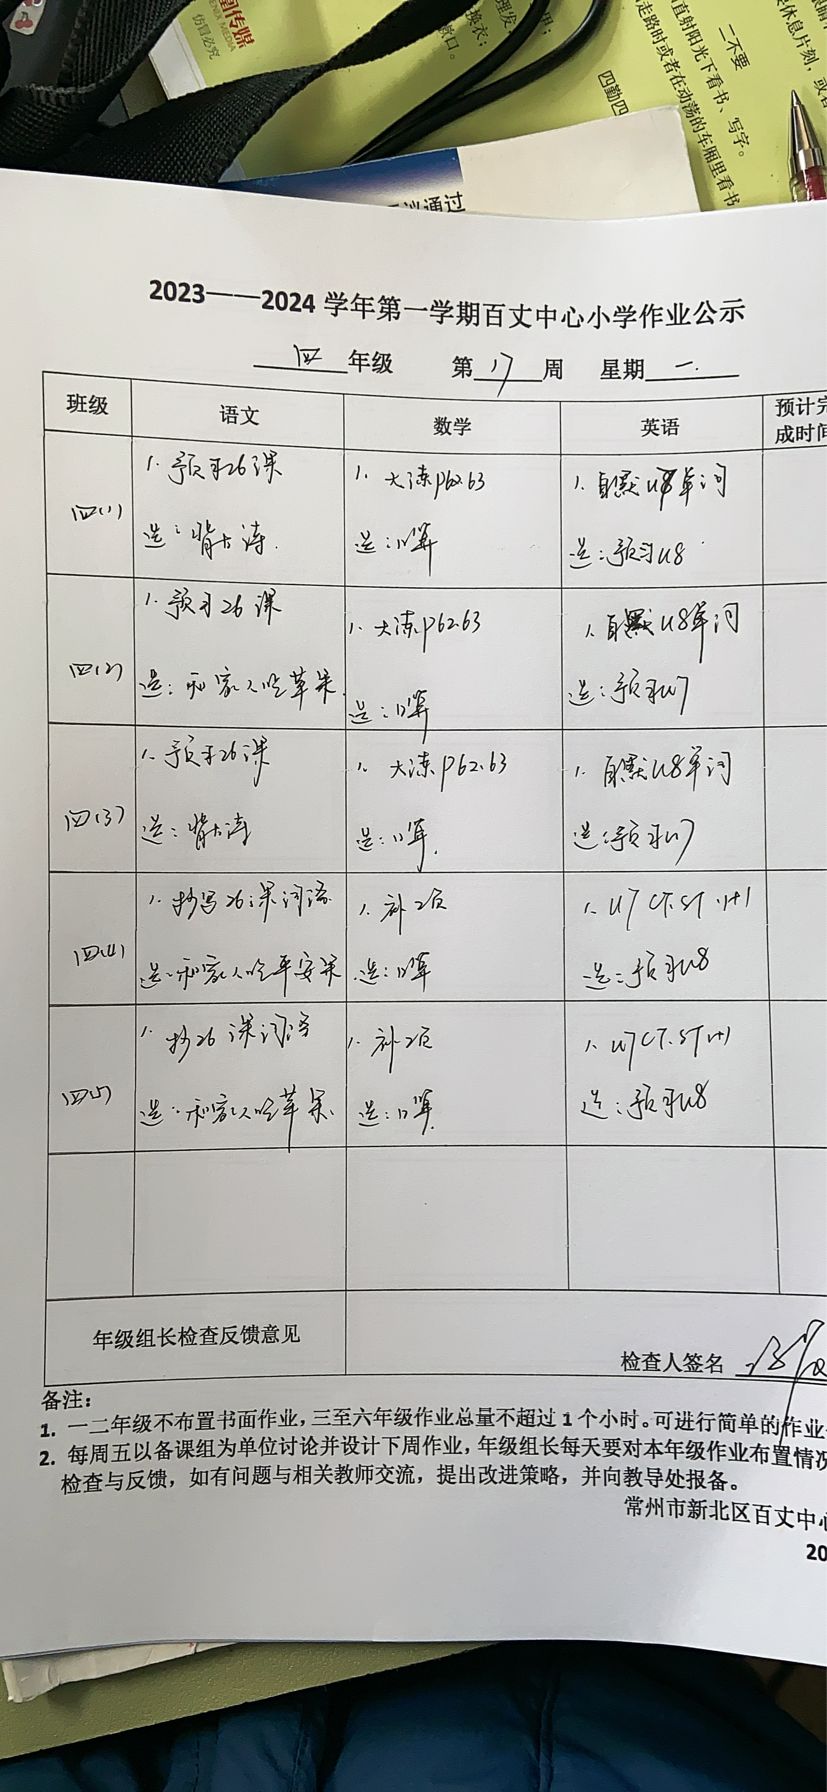 仿冒必究
换衣；
漱口。
二不要
直射阳光下看书、写字。
走路时或者在动荡的车厢里看书
四勤四
议通过
2023——2024 学年第一学期百丈中心小学作业公示
四 年级 第 17 周 星期 一
班级 语文 数学 英语 预计完
成时间
四(1)
1. 预习26课
选：背古诗.
1. 大练P62.63
选：口算
1. 自默U8单词
选：预习U8
四(2)
1. 预习26课
选：和家人吃苹果.
1. 大练P62.63
选：口算
1. 自默U8单词
选：预习U7
四(3)
1. 预习26课
选：背古诗
1. 大练P62.63
选：口算.
1. 自默U8单词
选：预习U7
四(4)
1. 抄写26课词语
选：和家人吃平安果
1. 补2页
选：口算
1. U7 CT.ST 1+1
选：预习U8
四(5)
1. 抄26课词语
选：和家人吃苹果.
1. 补2页
选：口算
1. U7 CT.ST 1+1
选：预习U8
年级组长检查反馈意见
检查人签名
备注：
1. 一二年级不布置书面作业，三至六年级作业总量不超过 1 个小时。可进行简单的作业
2. 每周五以备课组为单位讨论并设计下周作业，年级组长每天要对本年级作业布置情况
检查与反馈，如有问题与相关教师交流，提出改进策略，并向教导处报备。
常州市新北区百丈中心
20